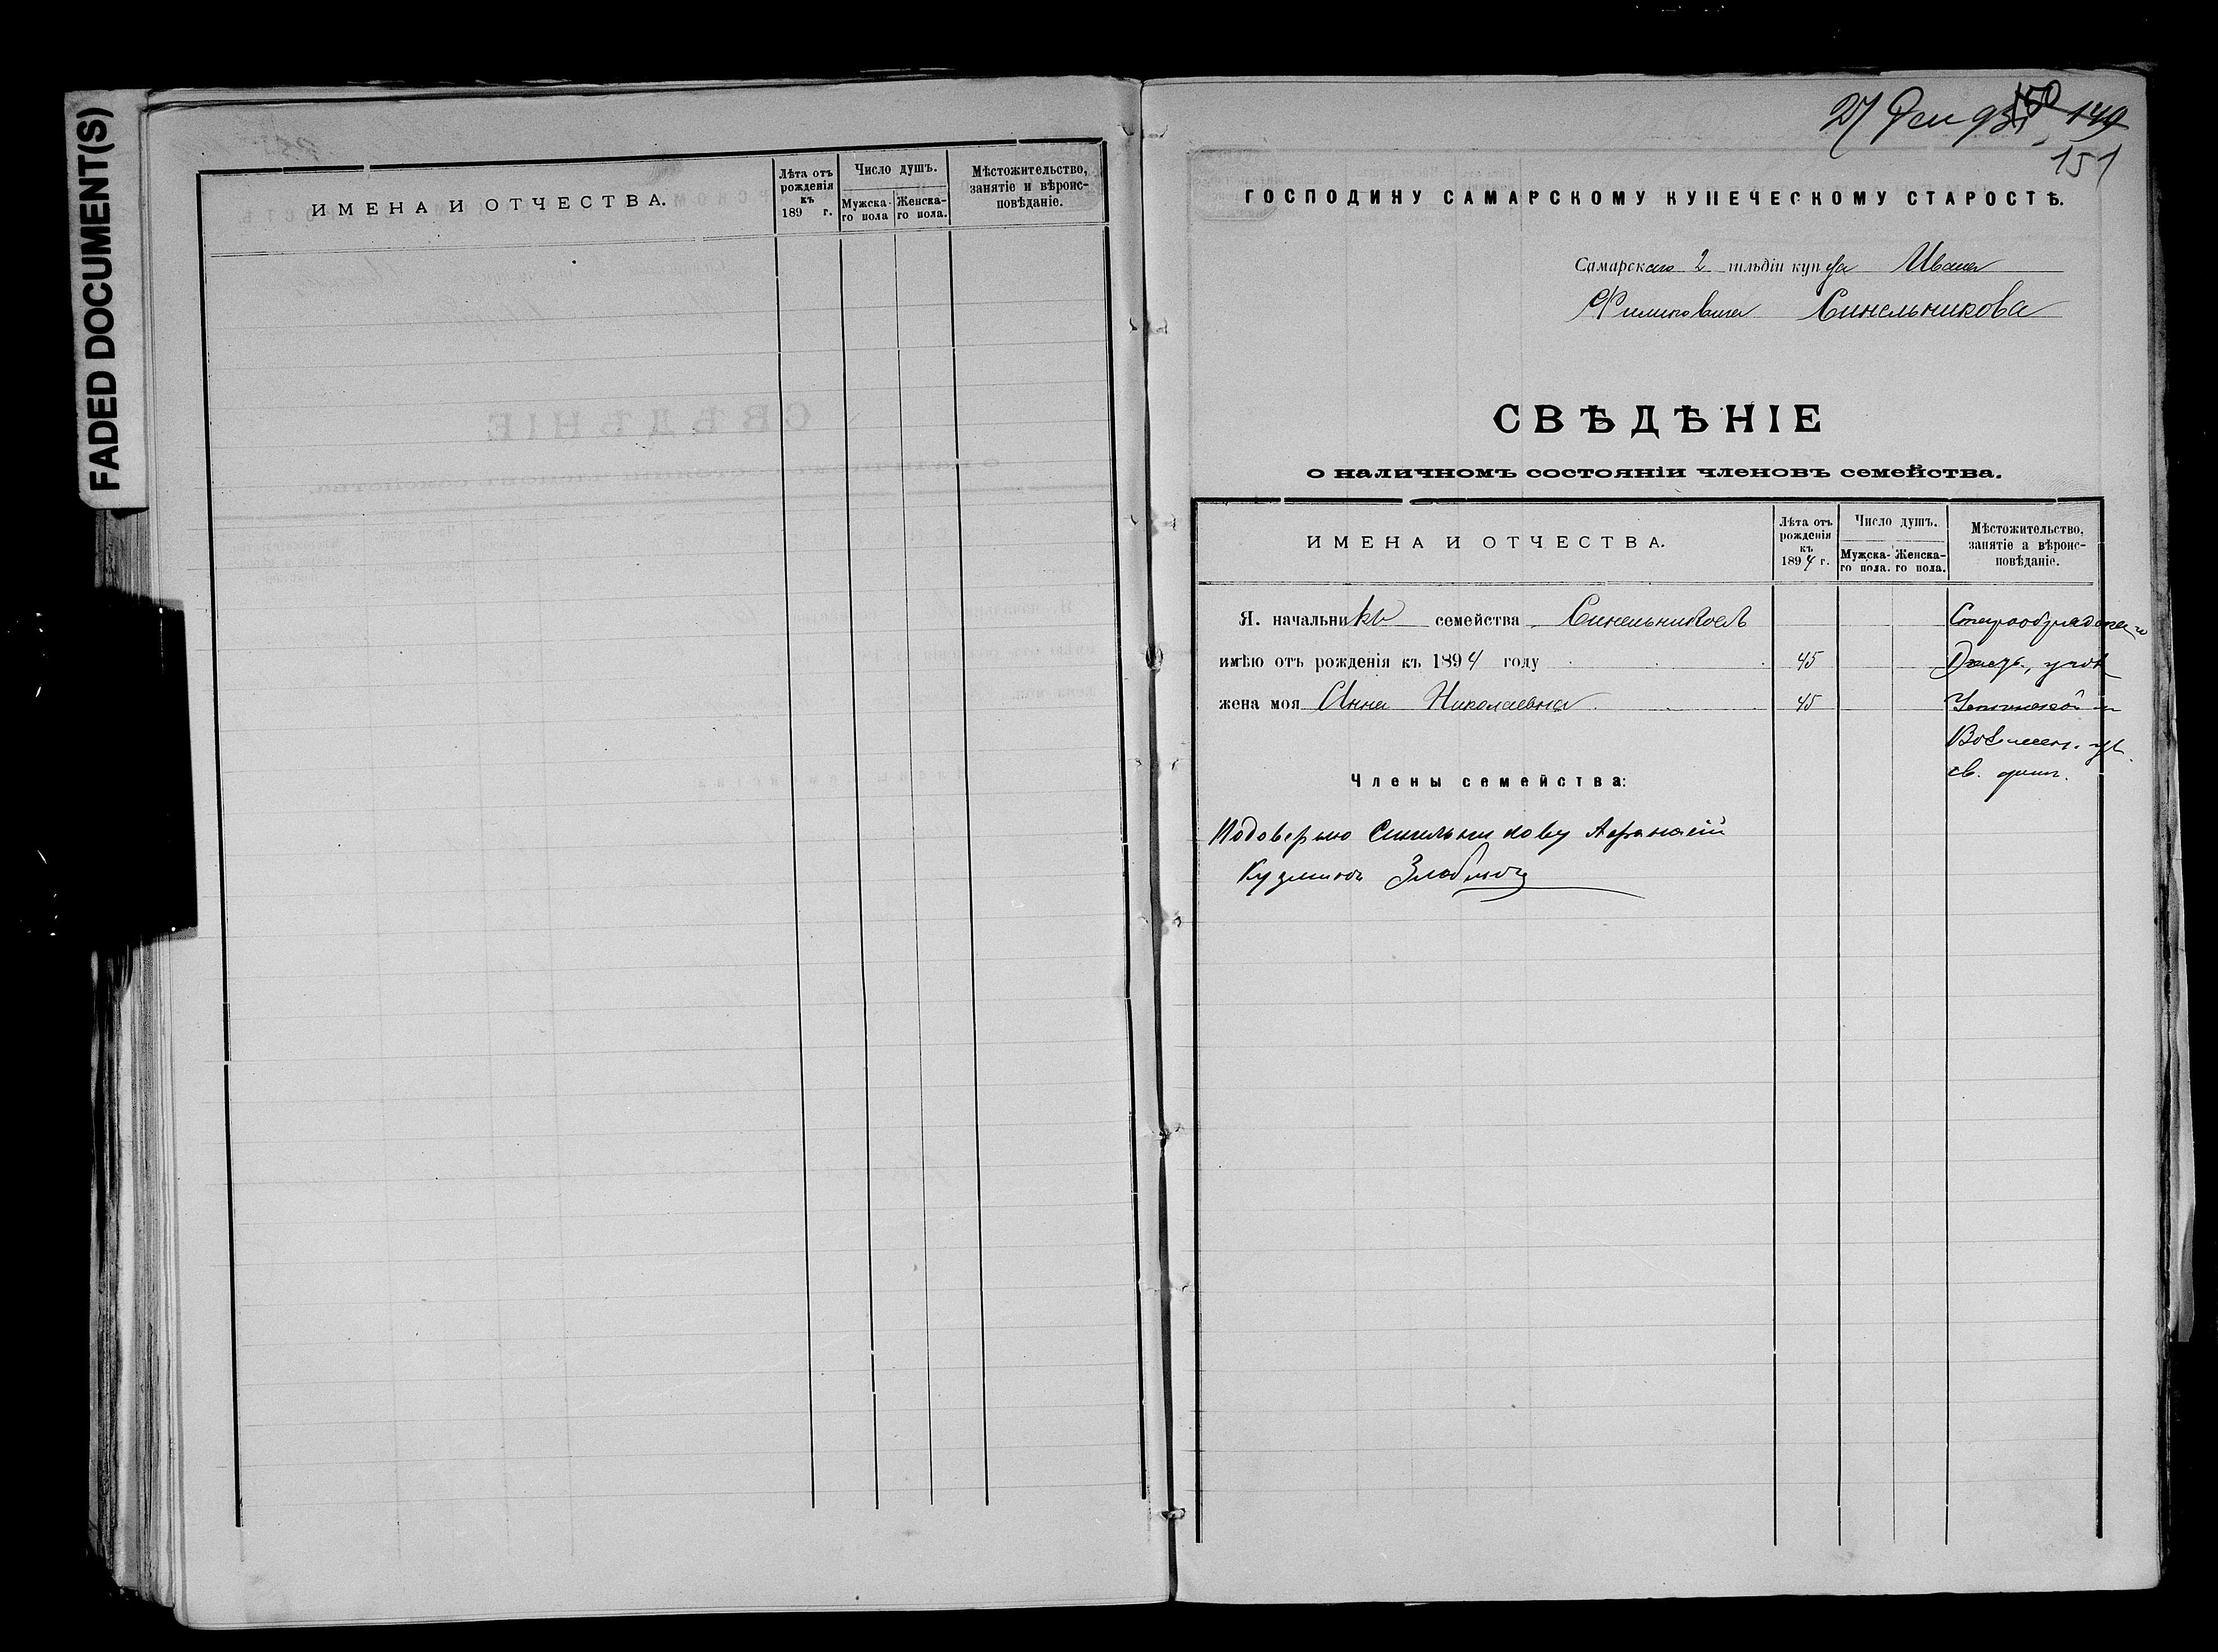 FADED DOCUMENT(S)
ИМЕНА И ОТЧЕСТВА.
Лѣта отъ
рожденія
къ
189 г.
Число душъ.
Мужска-
го пола
Женска-
го пола.
Мѣстожительство,
занятіе и вѣроис-
повѣданіе.
27 Дек 93
150 149
151
ГОСПОДИНУ САМАРСКОМУ КУПЕЧЕСКОМУ СТАРОСТѢ.
Самарскаго 2 гильдіи купца Ивана
Филиповича Синельникова
СВѢДѢНІЕ
о наличномъ состояніи членовъ семейства.
ИМЕНА И ОТЧЕСТВА.
Лѣта отъ
рожденія
къ
1894 г.
Число душъ.
Мужска-
го пола.
Женска-
го пола.
Мѣстожительство,
занятіе а вѣроис-
повѣданіе.
Я. начальникъ семейства Синельниковъ
имѣю отъ рожденія къ 1894 году 45
жена моя Анна Николаевна 45
св.
Члены семейства:
Подоверью Синельникову Афанасій
Кузминъ Злобинъ